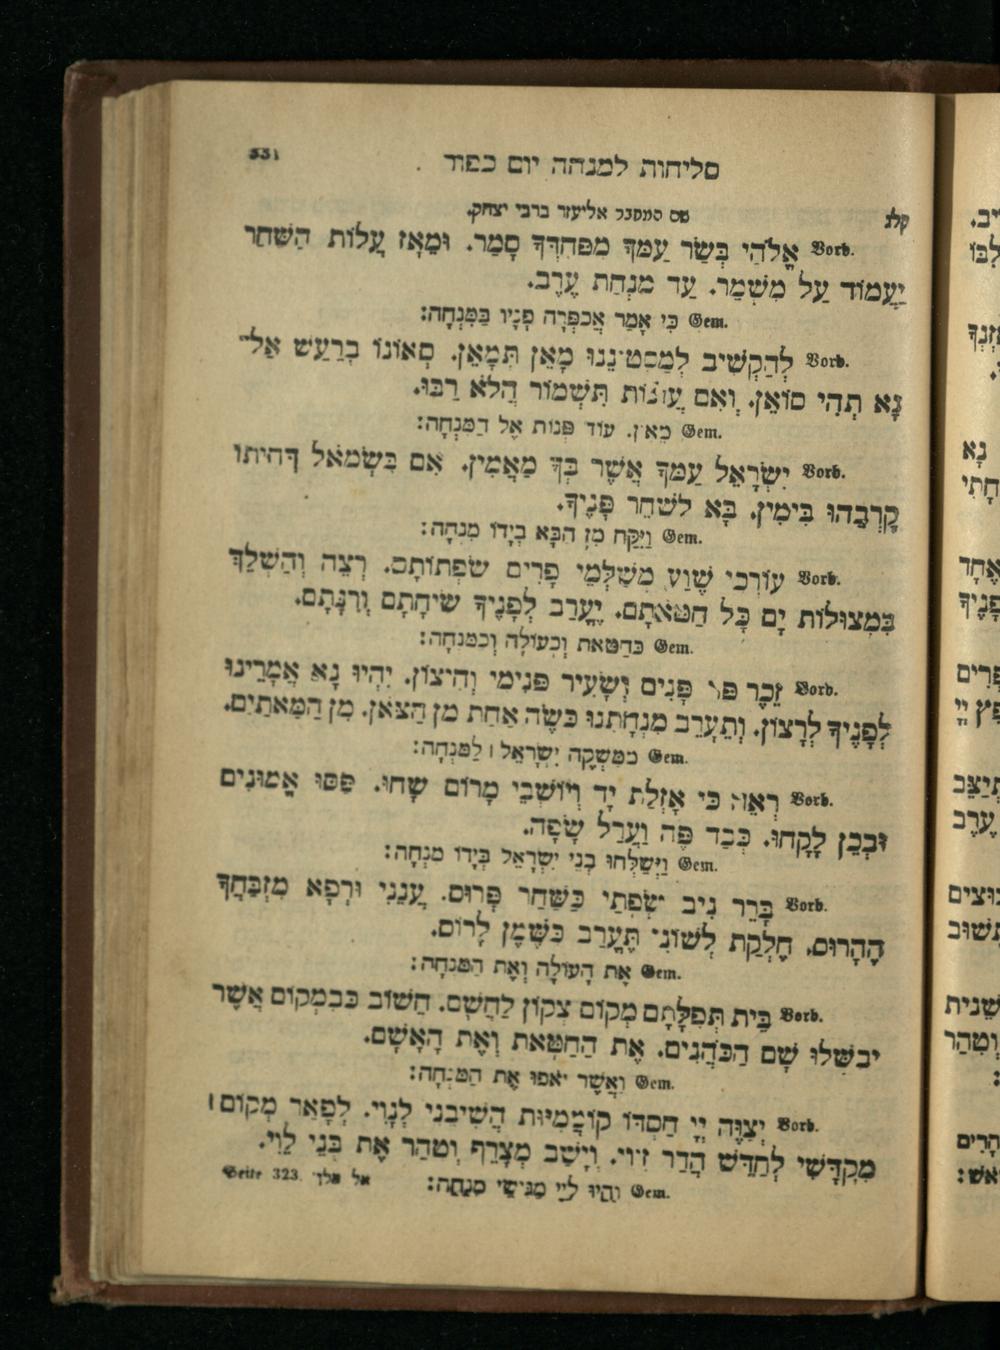 331
סליחות למנחה יום כפור
קלג
שם המחבר אליעזר ברבי יצחק.
Vorb. אֱלֹהַי בְּשַׂר עַמְּךָ מִפַּחְדְּךָ סָמַר. וּמֵאָז עֲלוֹת הַשַּׁחַר
יַעֲמוֹד עַל מִשְׁמַר. עַד מִנְחַת עֶרֶב.
Gem. כִּי אָמַר אֲכַפְּרָה פָנָיו בַּמִּנְחָה:
Vorb. לְהַקְשִׁיב מָאֵן תְּמָאֵן. סְאוֹנוֹ בְרַעַשׁ אַל־
נָא תְהִי סוֹאֵן. וְאִם עֲוֹנוֹת תִּשְׁמוֹר הֲלֹא רַבּוּ.
Gem. מֵאֵין. עוֹד פְּנוֹת אֶל הַמִּנְחָה:
Vorb. יִשְׂרָאֵל עַמְּךָ אֲשֶׁר בְּךָ מַאֲמִין. אִם כִּשְׂמֹאל דְּחִיתוֹ
קָרְבֵהוּ בְיָמִין. בָּא לְשַׁחֵר פָּנֶיךָ.
Gem. וַיִּקַּח מִן הַבָּא בְיָדוֹ מִנְחָה:
Vorb. עוֹרְכֵי שֶׁוַע מְשַׁלְּמֵי פָרִים שִׂפְתוֹתָם. רְצֵה וְהַשְׁלֵךְ
בִּמְצוּלוֹת יָם כָּל חַטֹּאתָם. יֶעֱרַב לְפָנֶיךָ שִׂיחָתָם וְרִנָּתָם.
Gem. כַּחַטָּאת וְכָעוֹלָה וְכַמִּנְחָה:
Vorb. זֵכֶר פַּר פָּנִים וְשָׂעִיר פְּנִימִי וְחִיצוֹן. יִהְיוּ נָא אֲמָרֵינוּ
לְפָנֶיךָ לְרָצוֹן. וְתֵעָרֵב מִנְחָתֵנוּ כְּשֶׂה אַחַת מִן הַצֹּאן. מִן הַמָּאתַיִם.
Gem. מִמַּשְׁקֵה יִשְׂרָאֵל לַמִּנְחָה:
Vorb. רְאֵה כִּי אָזְלַת יָד וְיוֹשְׁבֵי מָרוֹם שָׁחוּ. פַּסּוּ אֱמוּנִים
וּבְכֵן לָקָחוּ. כְּבַד פֶּה וַעֲרַל שָׂפָה.
Gem. וַיִּשְׁלְחוּ בְנֵי יִשְׂרָאֵל בְּיָדוֹ מִנְחָה:
Vorb. בָּרֵר נִיב שְׂפָתַי כַּשַּׁחַר פָּרוּס. עֲנֵנִי וּרְפָא מִזְבַּחֲךָ
הֶהָרוּס. חֶלְקַת לְשׁוֹנִי תֶּעֱרַב כַּשֶּׁמֶן לָרוֹם.
Gem. אֶת הָעוֹלָה וְאֶת הַמִּנְחָה:
Vorb. בֵּית תְּפִלָּתָם מְקוֹם צָקוּן לַחֲשָׁם. חֲשׁוֹב כְּבִמְקוֹם אֲשֶׁר
יְבַשְּׁלוּ שָׁם הַכֹּהֲנִים. אֶת הַחַטָּאת וְאֶת הָאָשָׁם.
Gem. וַאֲשֶׁר יֹאפוּ אֶת הַמִּנְחָה:
Vorb. יְצַוֶּה יְיָ חַסְדּוֹ קוֹמְמִיּוּת הֲשִׁיבֵנִי לְנָוִי. לְפָאֵר מְקוֹם
מִקְדָּשִׁי לְחַדֵּשׁ הֲדַר זִיוִי. וְיָשַׁב מְצָרֵף וְטִהַר אֶת בְּנֵי לֵוִי.
Gem. וְהָיוּ לַיְיָ מַגִּישֵׁי מִנְחָה:
אל מלך Seite 323.